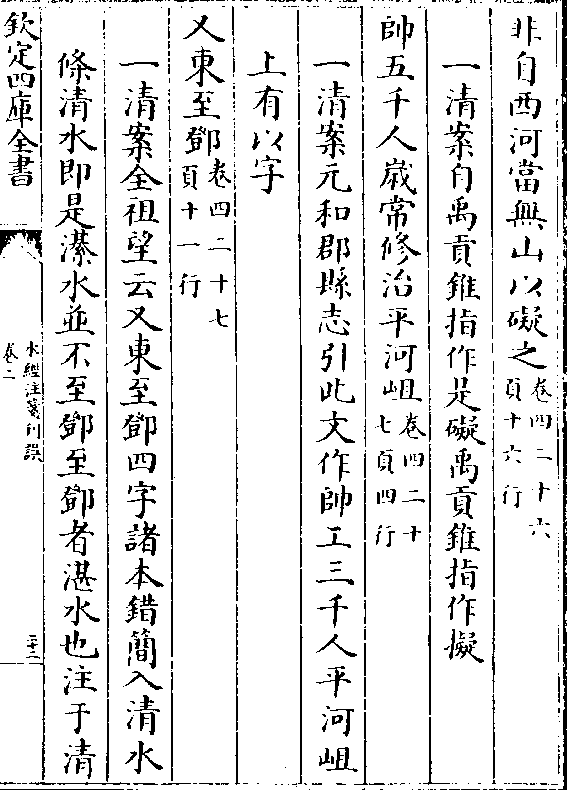 非自西河當無山以礙之卷四二十六
頁十六行
一清案自禹貢錐指作是礙禹貢錐指作擬
帥五千人歲常修治平河岨卷四二十
七頁四行
一清案元和郡縣志引此文作帥工三千人平河岨
上有以字
又東至鄧卷四二十七
頁十一行
一清案全祖望云又東至鄧四字諸本錯簡入清水
條清水即是濝水並不至鄧至鄧者湛水也注于清
欽定四庫全書
水經注箋刊誤
卷二
二十二